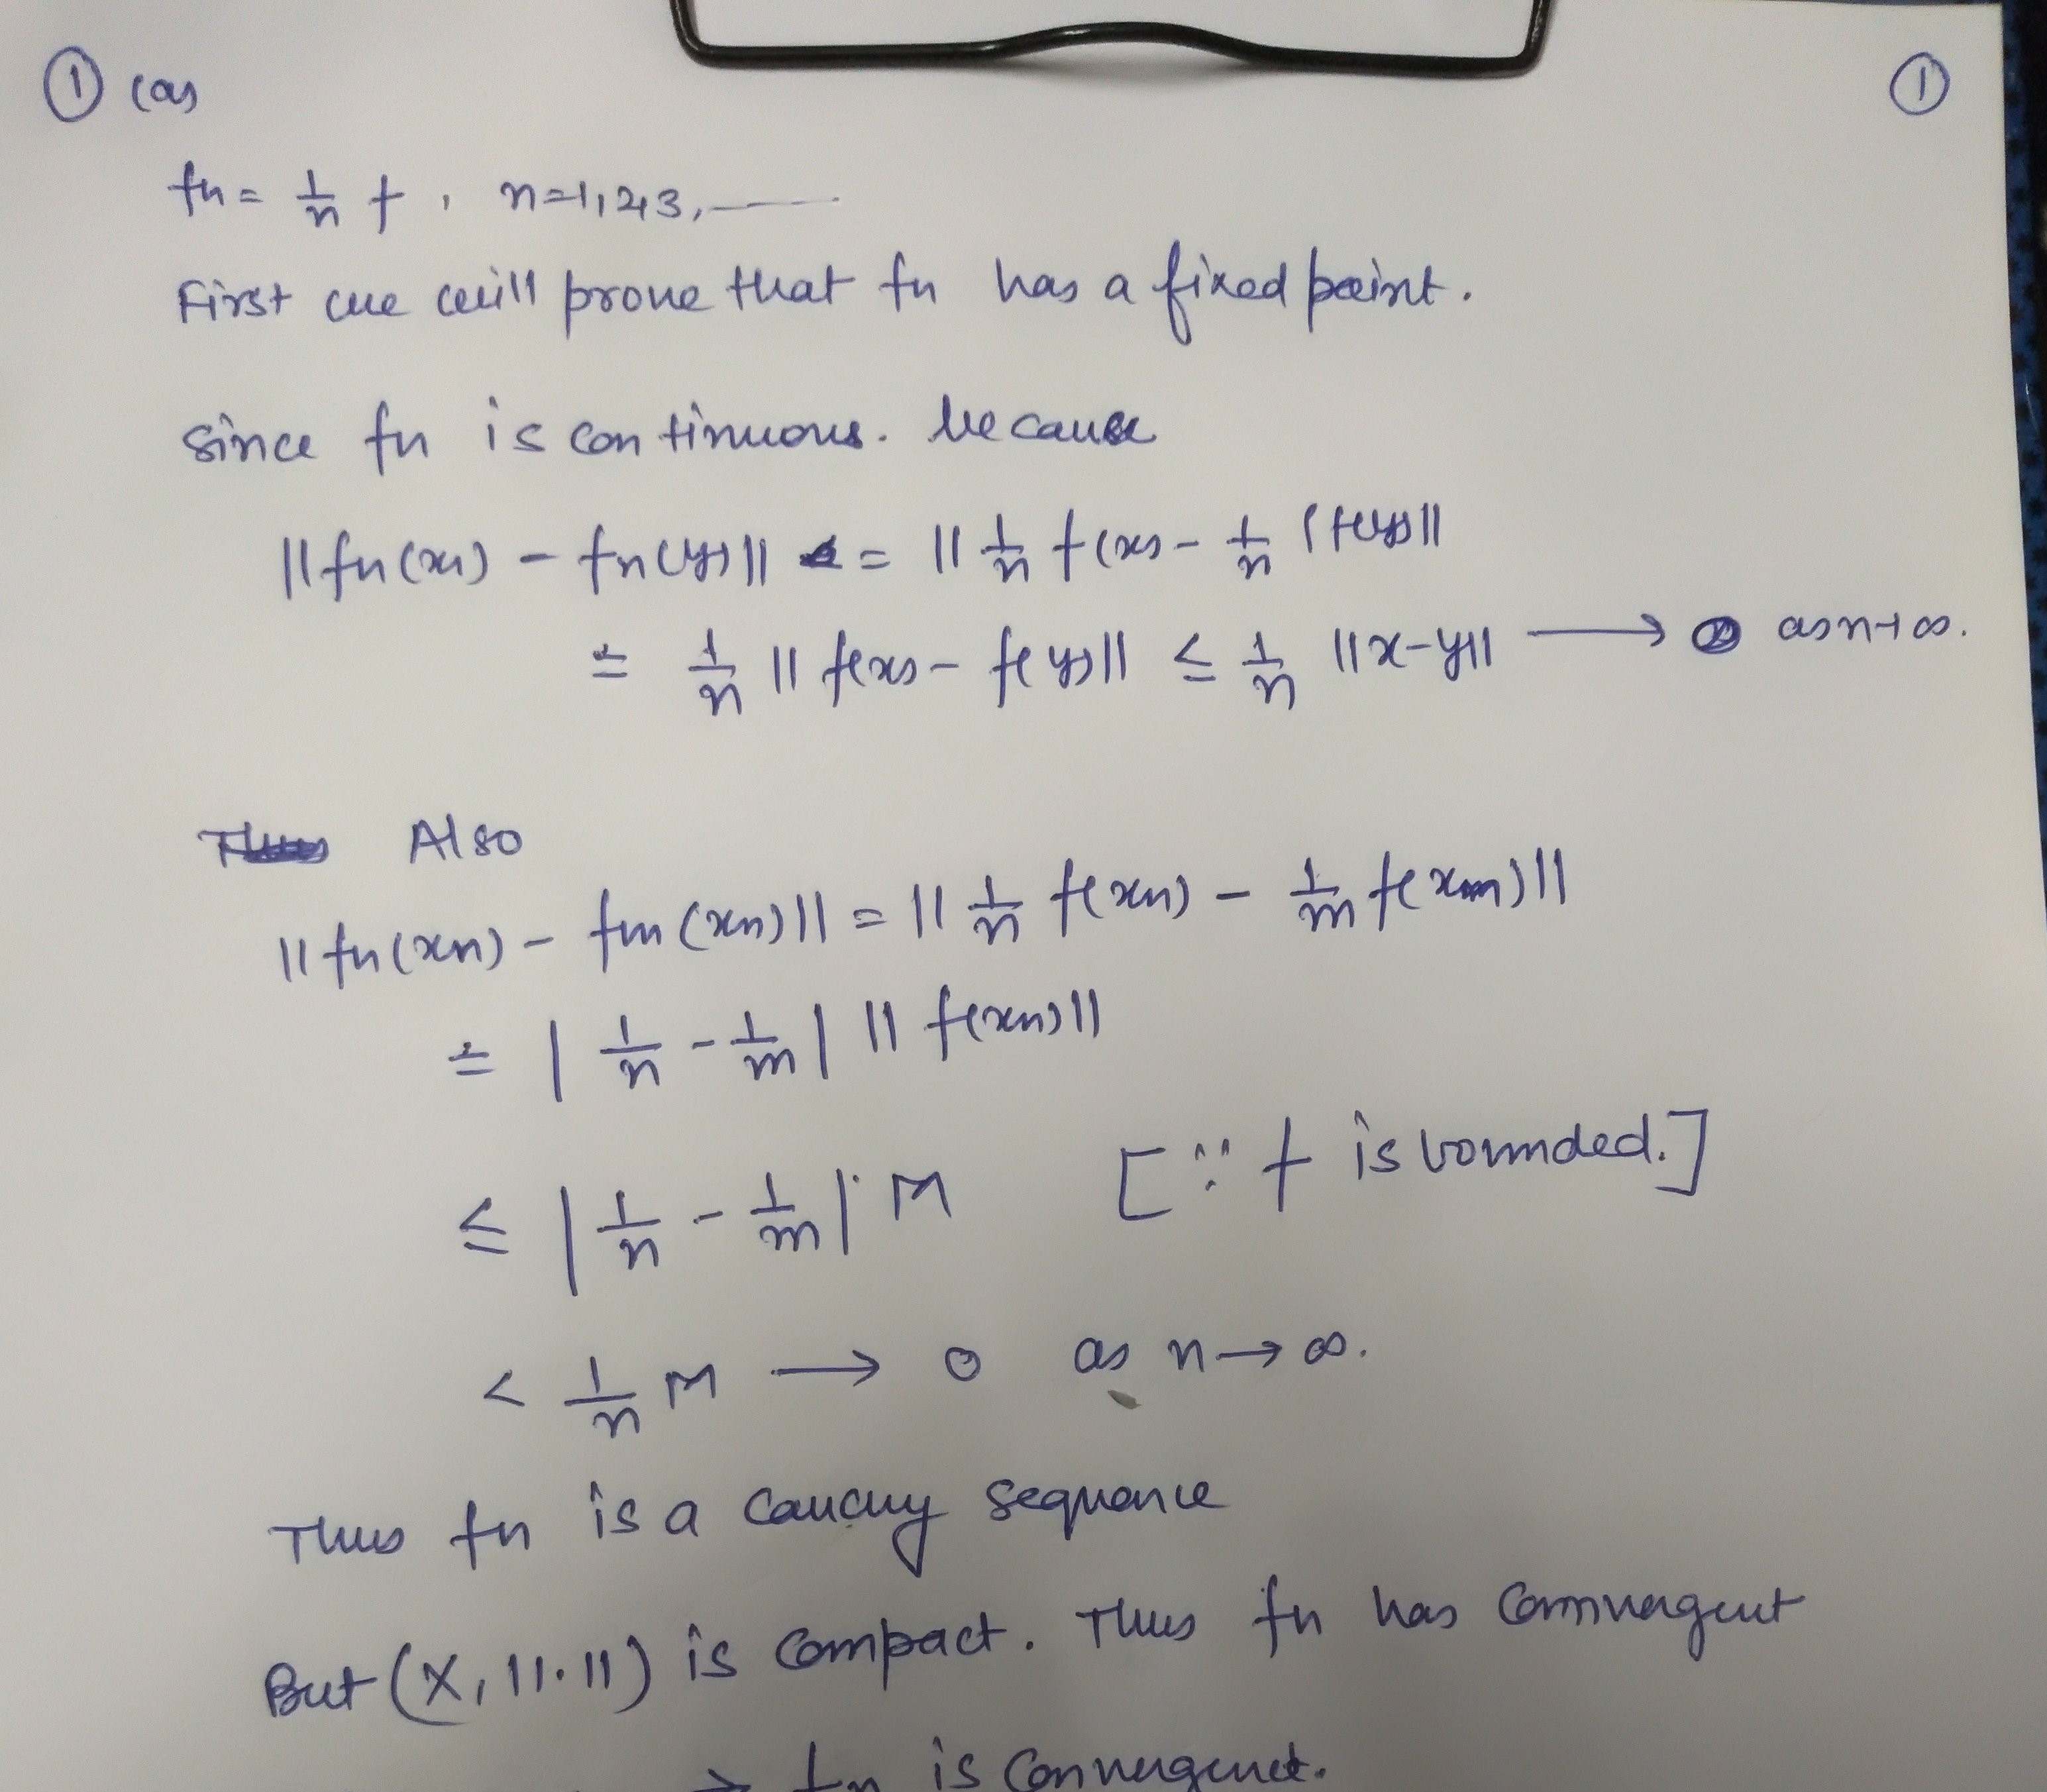 ① (a)
①
fn = 1/n f, n=1,2,3,——
First we will prove that fn has a fixed point.
Since fn is continuous. because
||fn(xn) - fn(y)|| = ||1/n f(x) - 1/n (f(y)||
= 1/n || f(x) - f(y)|| ≤ 1/n ||x-y|| → 0 as n→∞.
Also
||fn(xn) - fm(xn)|| = ||1/n f(xn) - 1/m f(xm)||
= |1/n - 1/m| || f(xn)||
≤ |1/n - 1/m|·M [∵ f is bounded.]
< 1/n M → 0 as n→∞.
Thus fn is a Caucuy sequence
But (X, ||·||) is compact. Thus fn has Convergent
→ fn is Convergenct.